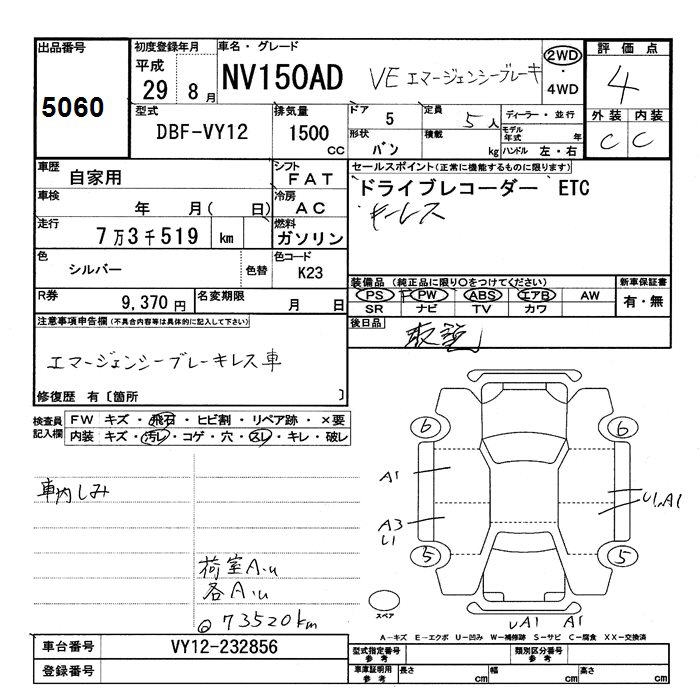 出品番号
5060
初度登録年月
平成
29 8月
車名・グレード
NV150AD VE エマージェンシーブレーキ
2WD
・
4WD
評価点
4
外装 内装
C C
型式
DBF-VY12
排気量
1500
CC
ドア 5
定員 5人
ディーラー・並行
形状 バン
積載 kg
モデル年式 年
ハンドル 左・右
車歴
自家用
シフト
FAT
車検
年 月( 日)
冷房
AC
走行
7万3千519 km
燃料
ガソリン
色
シルバー
色替
色コード
K23
R券
9,370円
名変期限
月 日
セールスポイント(正常に機能するものに限ります)
ドライブレコーダー ETC
キーレス
装備品 (純正品に限り○をつけてください)
PS PW ABS エアB AW
SR ナビ TV カワ
新車保証書
有・無
後日品
取説
注意事項申告欄(不具合内容等は具体的に記入して下さい)
エマージェンシーブレーキレス車
修復歴 有〔箇所 〕
検査員記入欄
FW キズ・飛石・ヒビ割・リペア跡・×要
内装 キズ・汚レ・コゲ・穴・スレ・キレ・破レ
車内しみ
荷室A.u
各A.u
◎73520km
6 6
A1
U1,A1
A3
U1
5 5
スペア
UA1 A1
A－キズ E－エクボ U－凹み W－補修跡 S－サビ C－腐食 XX－交換済
車台番号 VY12-232856
登録番号
型式指定番号
参考
類別区分番号
参考
車庫証明用
参考
長さ cm 幅 cm 高さ cm